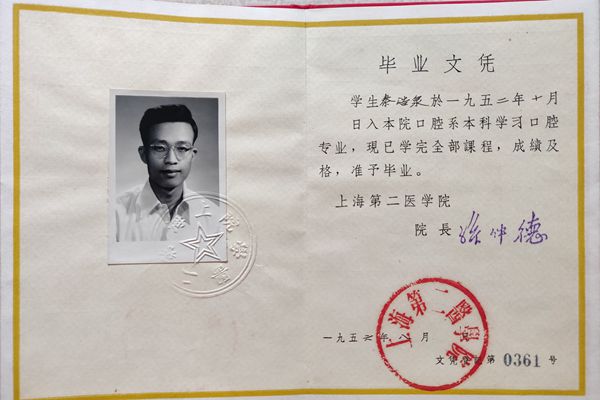 毕业文凭
学生秦磁泉於一九五二年十月
日入本院口腔系本科学习口腔
专业，现已学完全部課程，成績及
格，准予毕业。
上海第二医学院
院長 徐仲德
上海第二醫學院
一九五六年八月
文凭 第0361号